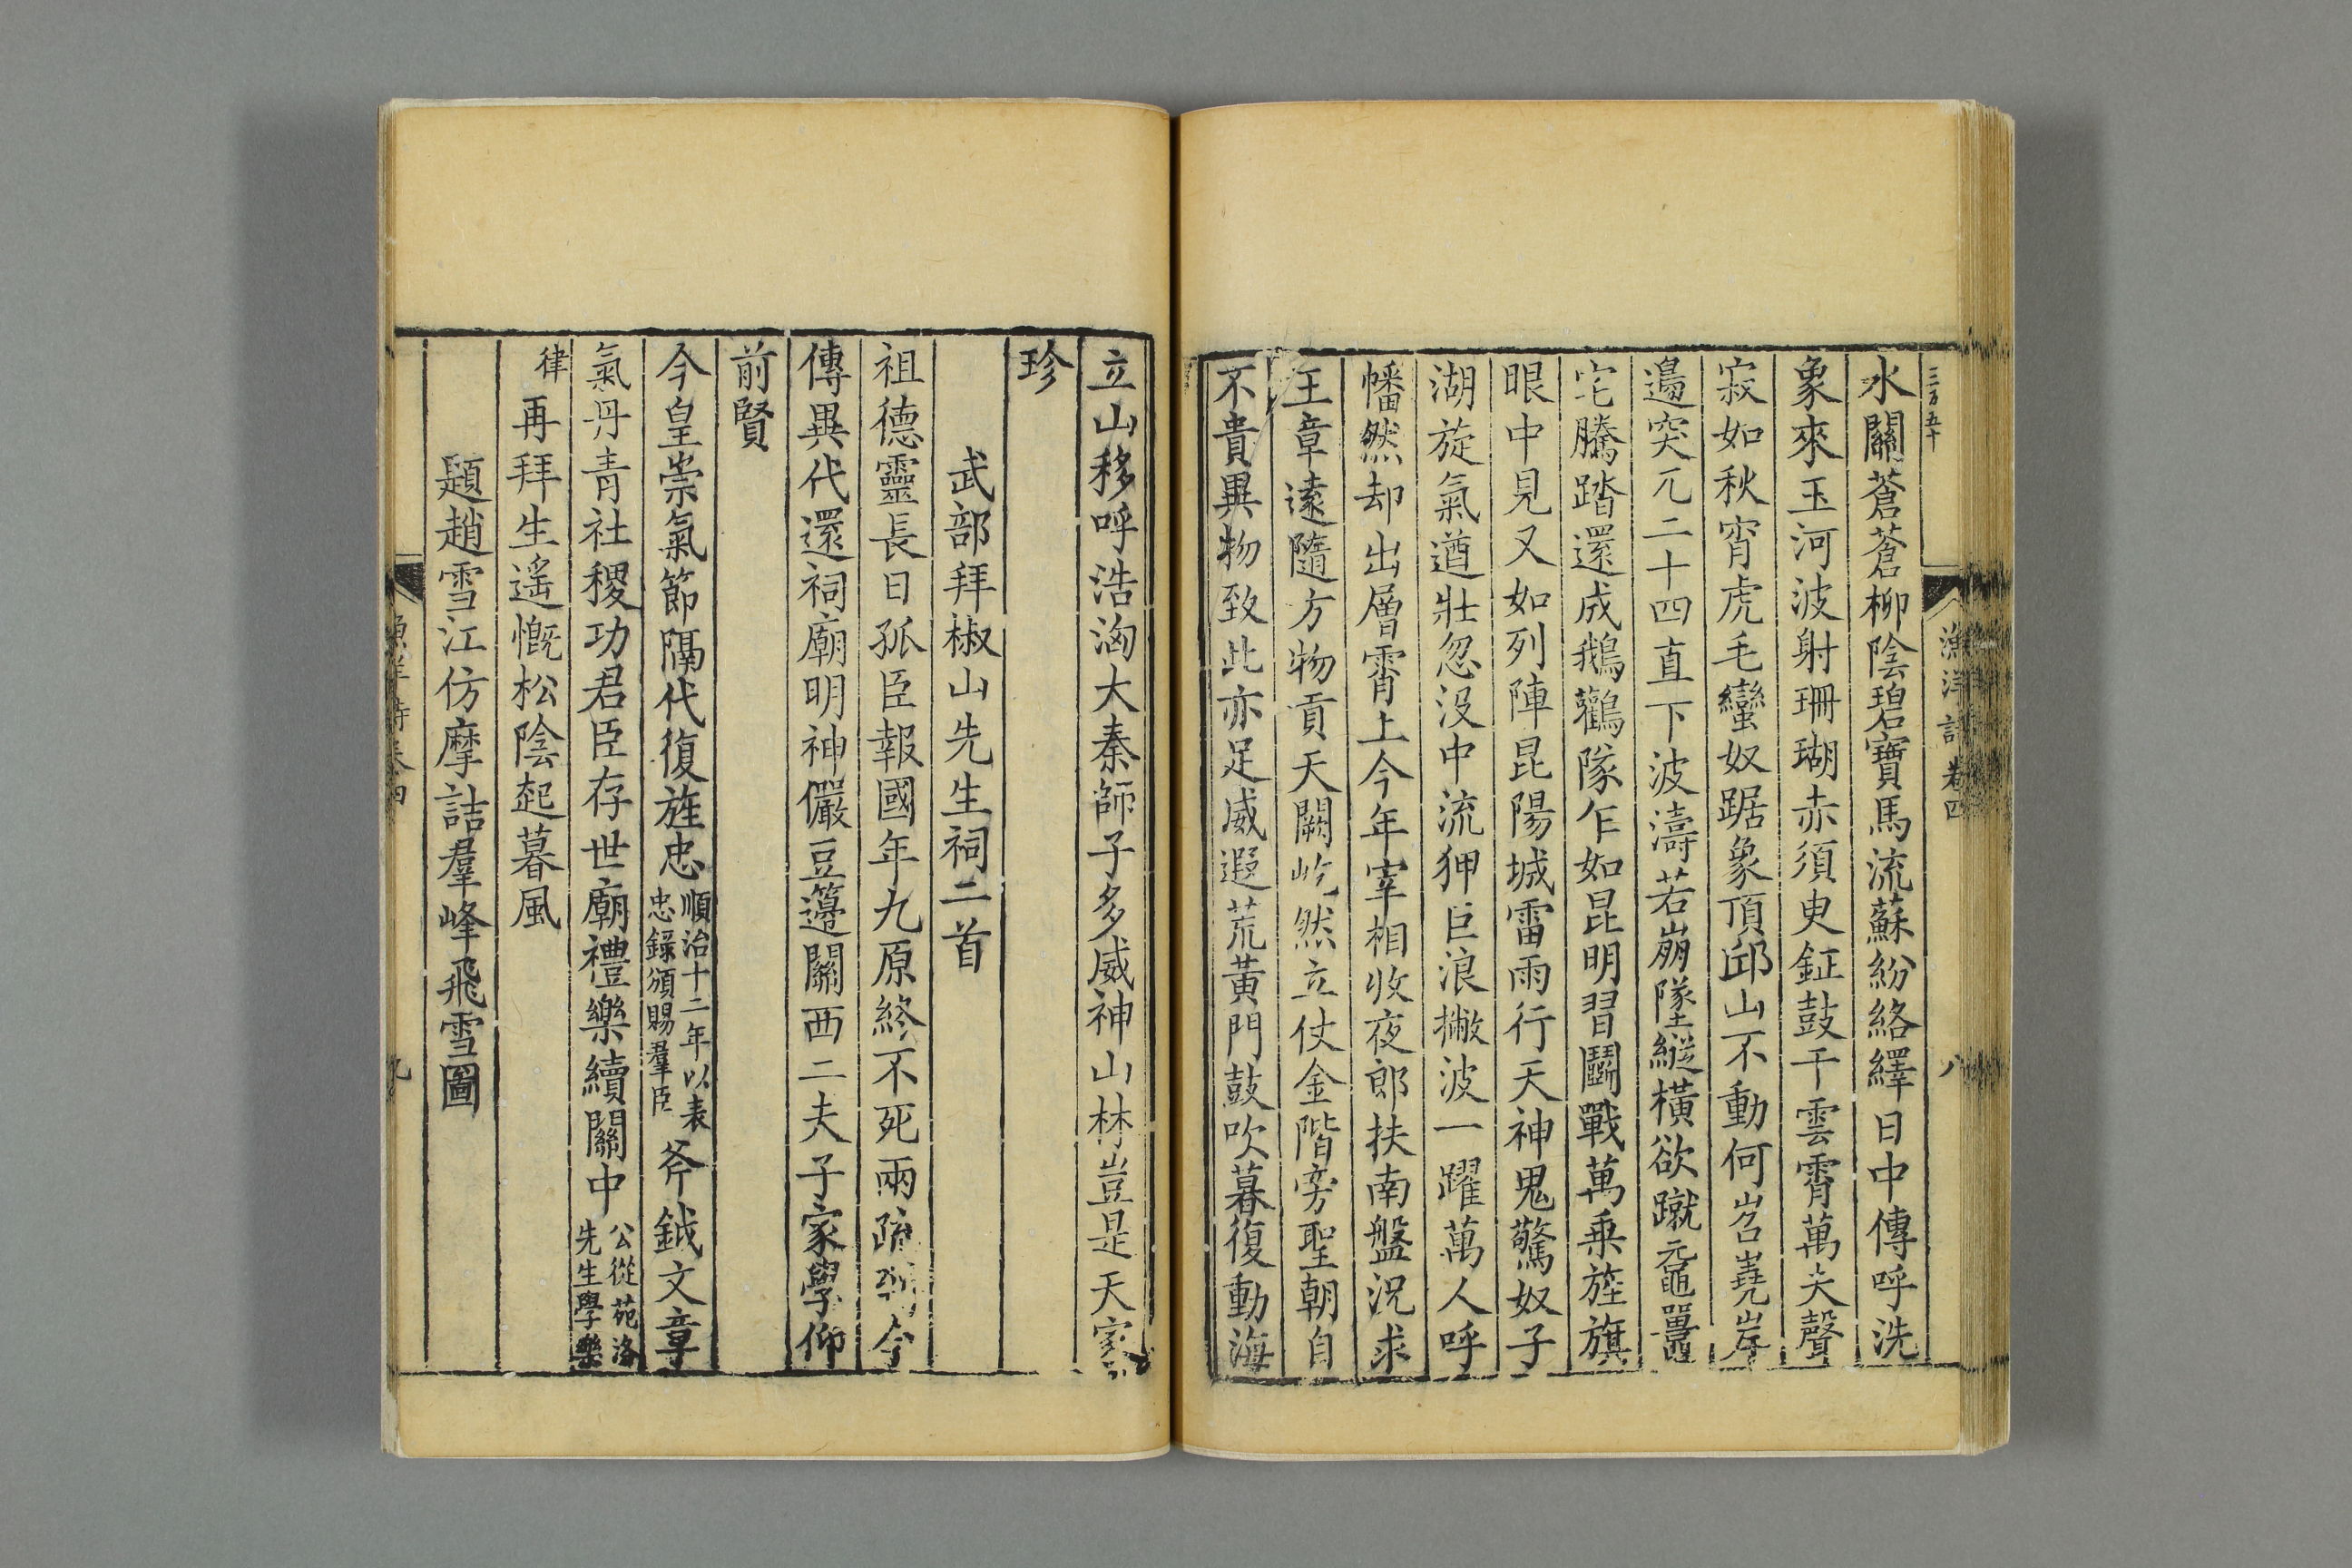 三百五十
漁洋詩卷四
八
水關蒼蒼柳陰碧寶馬流蘇紛絡繹日中傳呼洗
象來玉河波射珊瑚赤須臾鉦鼓干雲霄萬夫聲
寂如秋宵虎毛蠻奴踞象頂邱山不動何岧嶤岸
邊突兀二十四直下波濤若崩墜縱橫欲蹴黿鼉
宅騰踏還成鵝鸛隊乍如昆明習鬭戰萬乘旌旗
眼中見又如列陣昆陽城雷雨行天神鬼驚奴子
湖旋氣遒壯忽沒中流狎巨浪撇波一躍萬人呼
幡然却出層霄上今年宰相收夜郎扶南盤況求
王章遠隨方物貢天闕屹然立仗金階旁聖朝自
不貴異物致此亦足威遐荒黃門鼓吹暮復動海
立山移呼浩洶大秦師子多威神山林豈是天家
珍
武部拜椒山先生祠二首
祖德靈長日孤臣報國年九原終不死兩疏到今
傳異代還祠廟明神儼豆籩關西二夫子家學仰
前賢
今皇崇氣節隔代復旌忠順治十二年以表
忠錄頒賜羣臣斧鉞文章
氣丹青社稷功君臣存世廟禮樂續關中公從苑洛
先生學樂
律再拜生遙慨松陰起暮風
題趙雪江仿摩詰羣峰飛雪圖
漁洋詩卷四
九